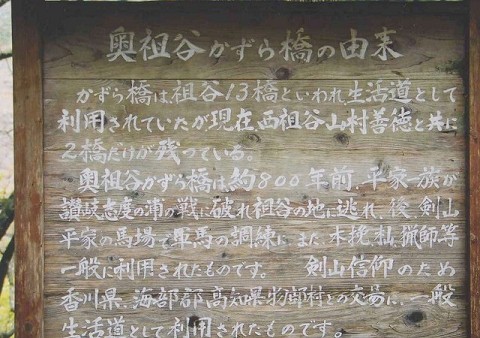 奥祖谷かずら橋の由来
かずら橋は、祖谷13橋といわれ、生活道として
利用されていたが現在、西祖谷山村善徳と共に
2橋だけが残っている。
奥祖谷かずら橋は、約800年前、平家一族が
讃岐志度の浦の戦に破れ祖谷の地に逃れ、後、剣山
平家の馬場で軍馬の調練に、また、木挽、杣、猟師等
一般に利用されたものです。 剣山信仰のため
香川県、海部郡、高知県物部村との交易に、一般
生活道として利用されたものです。